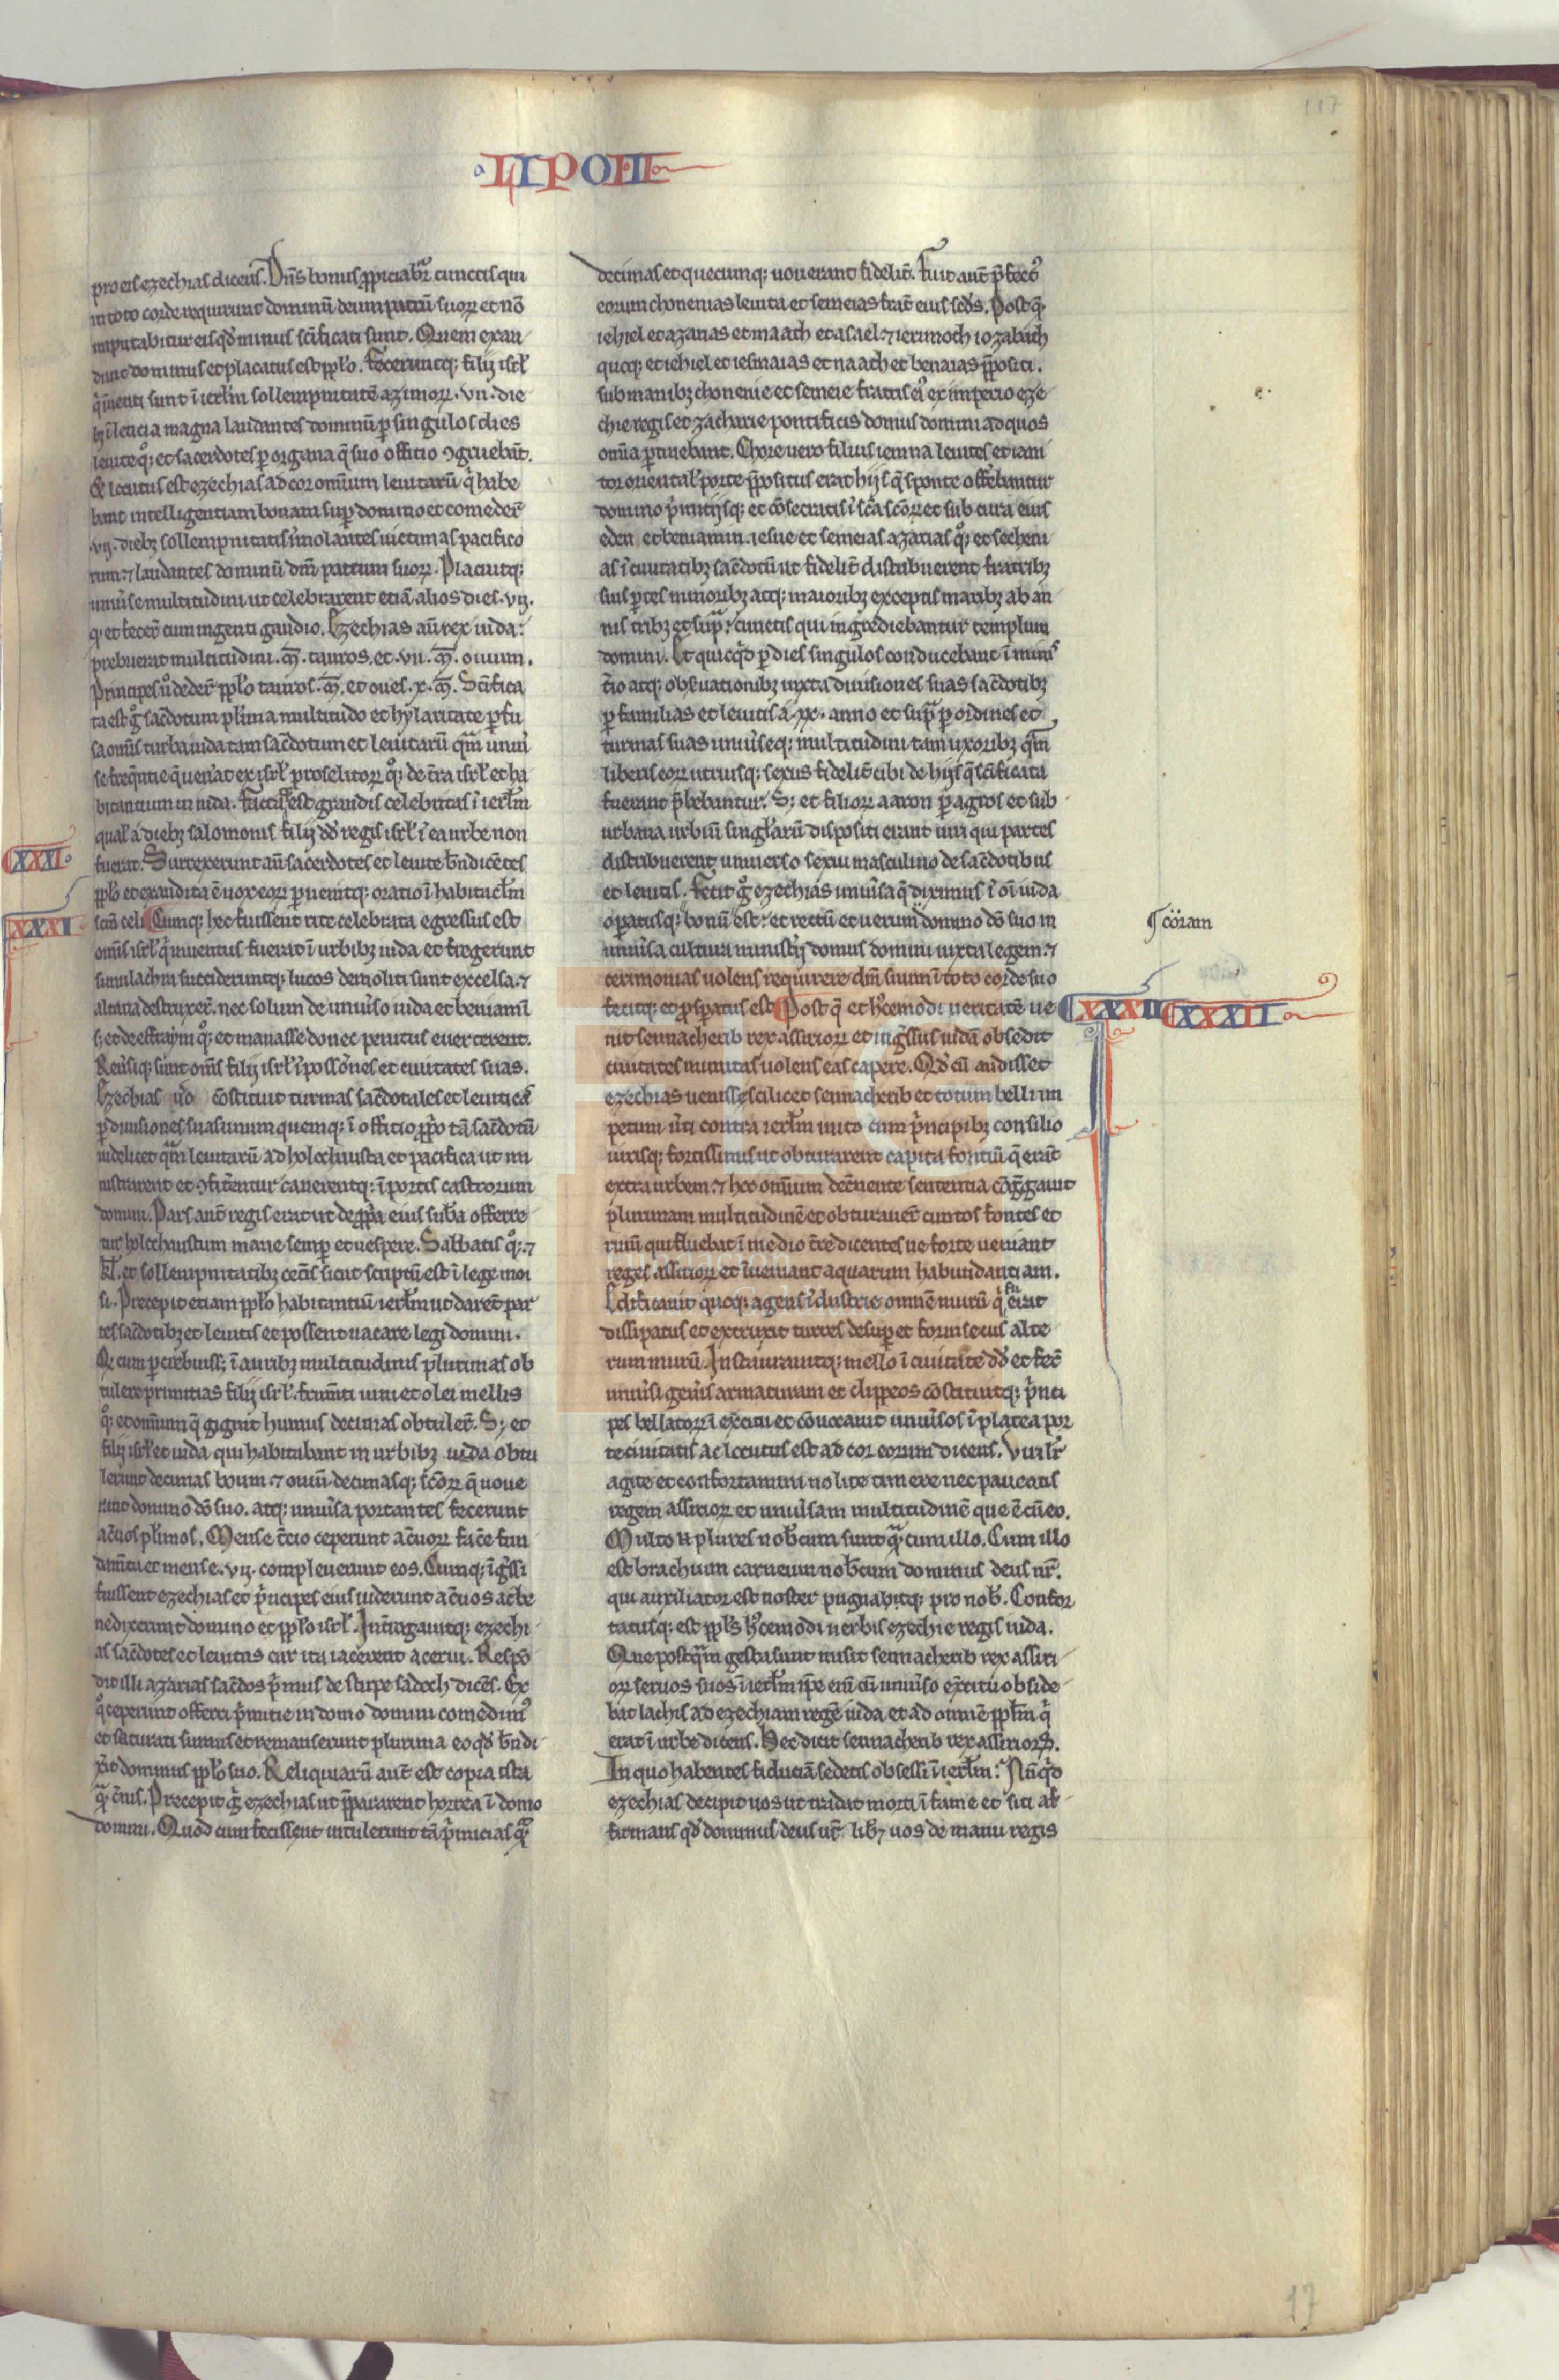 LIPOII
pro eis ezechias dicens. Dn̄s bonus ꝓpiciabit᷑ cunctis qui
in toto corde requirunt dominū deum patrū suoꝝ et nō
imputabitur eis qd̄ minus sc̄ificati sunt. Quem exau
diuit dominus et placatus est pplo. Feceruntq; filij isrl̄
q̄ inuenti sunt ī ierl̄m sollempnitatē azimoꝝ. vii. die
bz ī leticia magna laudantes dominū ꝑ singulos dies
leuite qͦ; et sacerdotes ꝑ organa q̄ suo officio ꝯgruebāt.
Et locutus est ezechias ad cor omnium leuitarū q̄ habe
bant intelligentiam bonam suꝑ domino et comeder̄
.vij. diebz sollempnitatis īmolantes uictimas pacifico
rum ⁊ laudantes dominū dm̄ patrum suoꝝ. Placuitq;
uniu̾se multitudini ut celebrarent etiā alios dies .vij.
q, et fecer̄ cum ingenti gaudio. Ezechias aūt rex iuda:
prebuerat multitudini .m̄. tauros. et .vii. m̄. ouium.
Principes u̾o deder̄ pplo tauros .m̄. et oues .x. m̄. Sc̄ifica
ta est gͦ sac̄dotum plima multitudo et hylaritate ꝑfu
sa omīs turba iuda tam sac̄dotum et leuitarū qm̄ uniu̾
se freq̄ntie q̄ uen̾at ex isrl̄ proselitoꝝ qͦ; de t̄ra isrl̄ et ha
bitantium in iuda. Factaq; est grandis celebritas ī ierl̄m
qual̄ a diebz salomonis filij dd̄ regis isrl̄ ī ea urbe non
XXXI.
fuerat. Surrexerunt aūt sacerdotes et leuite bn̄dicētes
pplo et exaudita ē uox eoꝝ ꝑuenitq; oratio ī habitacl̄m
XXXI
sc̄m celi. Cumq; hec fuissent rite celebrata egressus est
omīs isrl̄ q̄ inuentus fuerat ī urbibz iuda et fregerunt
simulachra succideruntq; lucos demoliti sunt excelsa. ⁊
altaria destruxer̄. nec solum de uniu̾so iuda et beniamī
s; et de effraym qͦ; et manasse donec penitus euerterent.
Reu̾siq; sunt omīs filij isrl̄ ī possōnes et ciuitates suas.
Ezechias u̾o cōstituit turmas sac̄dotales et leuiticas
ꝑ diuisiones suas unum quemq; ī officio ꝓprio tā sac̄dotū
uidelicet qm̄ leuitarū ad holochausta et pacifica ut mi
nistrarent et ꝯfitērentur canerentq; ī portis castrorum
domini. Pars autē regis erat ut de ꝓpria eius sub̄a offerre
tur holochaustum mane semꝑ et uespere. Sabbatis qͦ; ⁊
kl̄. et sollempnitatibz cet̄is sicut scriptū est ī lege moi
si. Precepit etiam pplo habitantiū ierl̄m ut darēt par
tes sac̄dotibz et leuitis et possent uacare legi domini.
Qͦ cum ꝑcrebuiss; ī auribz multitudinis plurimas ob
tulere primitias filij isrl̄. frumīti uini et olei mellis
qͦ; et omnium q̄ gignit humus decimas obtuler̄. S; et
filij isrl̄ et iuda qui habitabant in urbibz iuda obtu
lerunt decimas boum ⁊ ouiū. decimasq; sc̄oꝝ q̄ uoue
runt domino dō suo. atq; uniu̾sa portantes fecerunt
ac̄uos plimos. Mense t̄cio ceperunt ac̄uoꝝ iac̄e fun
damīta et mense .vij. compleuerunt eos. Cumq; īg̾ssi
fuissent ezechias et p̄ncipes eius uiderunt ac̄uos ac be
nedixerunt domino et pplo isrl̄. Int̾rogauitq; ezechi
as sac̄dotes et leuitas cur ita iacerent acerui. Respō
dit illi azarias sac̄dos p̄mus de stirpe sadoch dicēs. Ex
qͦ ceperunt offerri p̄mitie in domo domini comedimꝰ
et saturati sumus et remanserunt plurima eo qd̄ bn̄di
x̾it dominus pplo suo. Reliquiarū autē est copia ista
qͣ c̄nis. Precepit gͦ ezechias ut p̄pararent horrea ī domo
domini. Quod cum fecissent intulerunt tā p̄micias qͣ
decimas et quecumq; uouerant fidelit̄. Fuit autē p̄fectꝰ
eorum chonenias leuita et semeias frat̄ eius sc̄ds. Post q̄
iehiel et azarias et maath et asael ⁊ ierimoth iozabath
quoq; et iehiel et iesmaias et naath et benaias p̄positi.
sub manibz chonenie et semeie fratris eiꝰ ex imperio eze
chie regis et zacharie pontificis domus domini ad quos
omīa ꝑtinebant. Chore uero filius iemna leuites et iani
tor oriental̄ porte p̄positus erat hijs q̄ sponte offēbantur
domino p̄mitijsq; et cōsecratis ī sc̄a sc̄oꝝ et sub cura eius
eden et beniamin. iesue et semeias azarias qͦ; et secheni
as ī ciuitatibz sac̄dotū ut fidelit̄ distribuerent fratribz
suis ꝑtes minoribz atq; maioribz exceptis maribz ab an
nis tribz et supͣ: cunctis qui ingrediebantur templum
domini. Et quicqͥd ꝑ dies singulos conducebant ī minis
t̄io atq; obs̾uationibz iuxta diuisiones suas sac̄dotibz
ꝑ familias et leuitis a .xx. anno et supͣ ꝑ ordines et
turmas suas uniu̾seq; multitudini tam uxoribz qm̄
liberis eoꝝ utriusq; sexus fidelit̄ cibi de hijs q̄ sc̄ificata
fuerant p̄bebantur. S; et filioꝝ aaron ꝑ agros et sub
urbana urbiū singl̄arū dispositi erant uiri qui partes
distribuerent uniuerso sexui masculino de sac̄dotibus
et leuitis. Fecit gͦ ezechias uniu̾sa q̄ diximus ī oī iuda
operatusq; bonū est: et rectū et uerum domino dō suo in
¶ coram
uniu̾sa cultura ministij domus domini iuxta legem. ⁊
cerimonias uolens requirere dm̄ suum ī toto corde suo
fecitq; et ꝓsperatus est. Post q̄ et hꝰcemodi ueritatē ue
XXXII XXXII
nit sennacherib rex assirioꝝ et ing̾ssus iudā obsedit
ciuitates munitas uolens eas capere. Qd̄ cū audisset
ezechias uenisse scilicet sennacherib et totum belli im
petum u̾ti contra ierl̄m inito cum p̄ncipibz consilio
uirisq; fortissimis ut obturarent capita fontiū q̄ erāt
extra urbem. ⁊ hoc omnium dec̄nente sententia cōg̾gauit
plurimam multitudinē et obturauer̄ cunctos fontes et
riuū qui fluebat ī medio t̄re dicentes ne forte ueniant
reges assirioꝝ et īueniant aquarum habundantiam.
Edificauit quoq; agens īdustrie omnē murū q̄ fuerat
dissipatus et extruxit turres desuꝑ et forinsecus alte
rum murū. Instaurauitq; mello ī ciuitate dd̄ et fec̄
uniu̾si gen̾is armaturam et clippeos cōstituitq; p̄nci
pes bellatoꝝ ī exc̄itu et cōuocauit uniu̾sos ī platea por
te ciuitatis ac locutus est ad cor eorum dicens. Viril̄r
agite et confortamini nolite timere nec paueatis
regem assirioꝝ et uniu̾sam multitudinē que ē cū eo.
Multo n̄ plures nob̄cum sunt qͣ cum illo. Cum illo
est brachium carneum nob̄cum dominus deus nr̄.
qui auxiliator est noster pugnabitq; pro nob̄. Confor
tatusq; est ppl̄s hꝰcemodi uerbis ezechie regis iuda.
Que postqm̄ gesta sunt misit sennacherib rex assiri
oꝝ seruos suos ī ierl̄m ipe enī cū uniu̾so ex̄citu obside
bat lachis ad ezechiam regē iuda et ad omnē ppl̄m q̄
erat ī urbe dicens. Hec dicit sennacherib rex assirioꝝ.
In quo habentes fiduciā sedetis obsessi ī ierl̄m: Nūqͥd
ezechias decipit uos ut tradat morti ī fame et siti af
firmans qd̄ dominus deus ur̄ lib̾et uos de manu regis
117
17